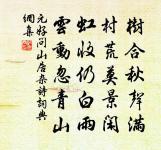 樹合秋聲滿
村荒莫景閑
虹收仍白雨
雲動忽青山
元好問山居雜詩詞典
網集